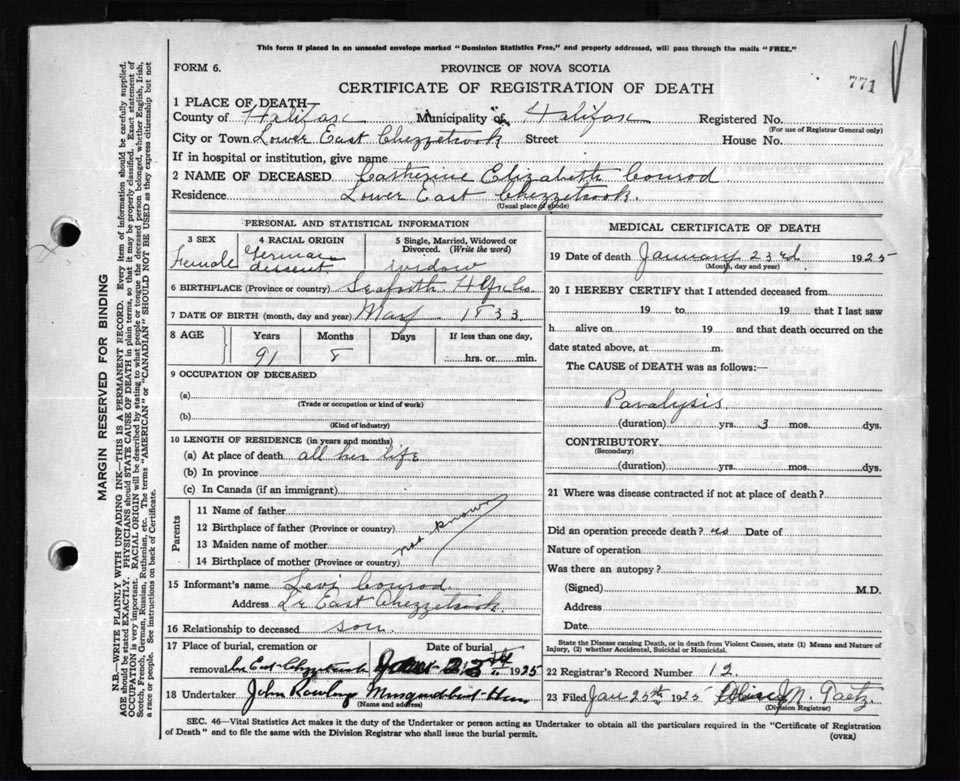 This form if placed in an unsealed envelope marked "Dominion Statistics Free," and properly addressed, will pass through the mails "FREE."
FORM 6.
PROVINCE OF NOVA SCOTIA
CERTIFICATE OF REGISTRATION OF DEATH
771
1 PLACE OF DEATH
County of Halifax Municipality of Halifax Registered No.
(For use of Registrar General only)
City or Town Lower East Chezzetcook Street House No.
If in hospital or institution, give name
2 NAME OF DECEASED Catherine Elizabeth Conrod
Residence Lower East Chezzetcook.
(Usual place of abode)
PERSONAL AND STATISTICAL INFORMATION
3 SEX 4 RACIAL ORIGIN 5 Single, Married, Widowed or Divorced. (Write the word)
Female German dissent widow
6 BIRTHPLACE (Province or country) Seaforth Hfx Co.
7 DATE OF BIRTH (month, day and year) May 1833
8 AGE Years Months Days If less than one day,
91 8 hrs. or min.
9 OCCUPATION OF DECEASED
(a)
(Trade or occupation or kind of work)
(b)
(Kind of industry)
10 LENGTH OF RESIDENCE (in years and months)
(a) At place of death all her life
(b) In province
(c) In Canada (if an immigrant)
Parents
11 Name of father
12 Birthplace of father (Province or country)
13 Maiden name of mother
14 Birthplace of mother (Province or country)
not known
15 Informant's name Levi Conrod
Address Lr East Chezzetcook.
16 Relationship to deceased son
17 Place of burial, cremation or removal Lr East Chezzetcook Date of burial 1925
18 Undertaker John Rowlings Musquodoboit Har
(Name and address)
MEDICAL CERTIFICATE OF DEATH
19 Date of death January 23rd 1925
(Month, day and year)
20 I HEREBY CERTIFY that I attended deceased from
19 to 19 that I last saw
h alive on 19 and that death occurred on the
date stated above, at m.
The CAUSE of DEATH was as follows:—
Paralysis
(duration) yrs. 3 mos. dys.
CONTRIBUTORY
(Secondary)
(duration) yrs. mos. dys.
21 Where was disease contracted if not at place of death?
Did an operation precede death? no Date of
Nature of operation
Was there an autopsy?
(Signed) M.D.
Address
Date
State the Disease causing Death, or in death from Violent Causes, state (1) Means and Nature of Injury, (2) whether Accidental, Suicidal or Homicidal.
22 Registrar's Record Number 12
23 Filed Jan 25th 1925 M. Gaetz
(Division Registrar)
SEC. 46—Vital Statistics Act makes it the duty of the Undertaker or person acting as Undertaker to obtain all the particulars required in the "Certificate of Registration
of Death" and to file the same with the Division Registrar who shall issue the burial permit.
(OVER)
MARGIN RESERVED FOR BINDING
N.B.—WRITE PLAINLY WITH UNFADING INK—THIS IS A PERMANENT RECORD. Every item of information should be carefully supplied.
AGE should be stated EXACTLY. PHYSICIANS should STATE CAUSE OF DEATH in plain terms, so that it may be properly classified. Exact statement of
OCCUPATION is very important. RACIAL ORIGIN will be described by stating to what people or tongue the deceased person belonged, whether English, Irish,
Scotch, French, German, Russian, Ruthenian, etc. The terms "AMERICAN" or "CANADIAN" SHOULD NOT BE USED as they express citizenship but not
a race or people. See instructions on back of Certificate.